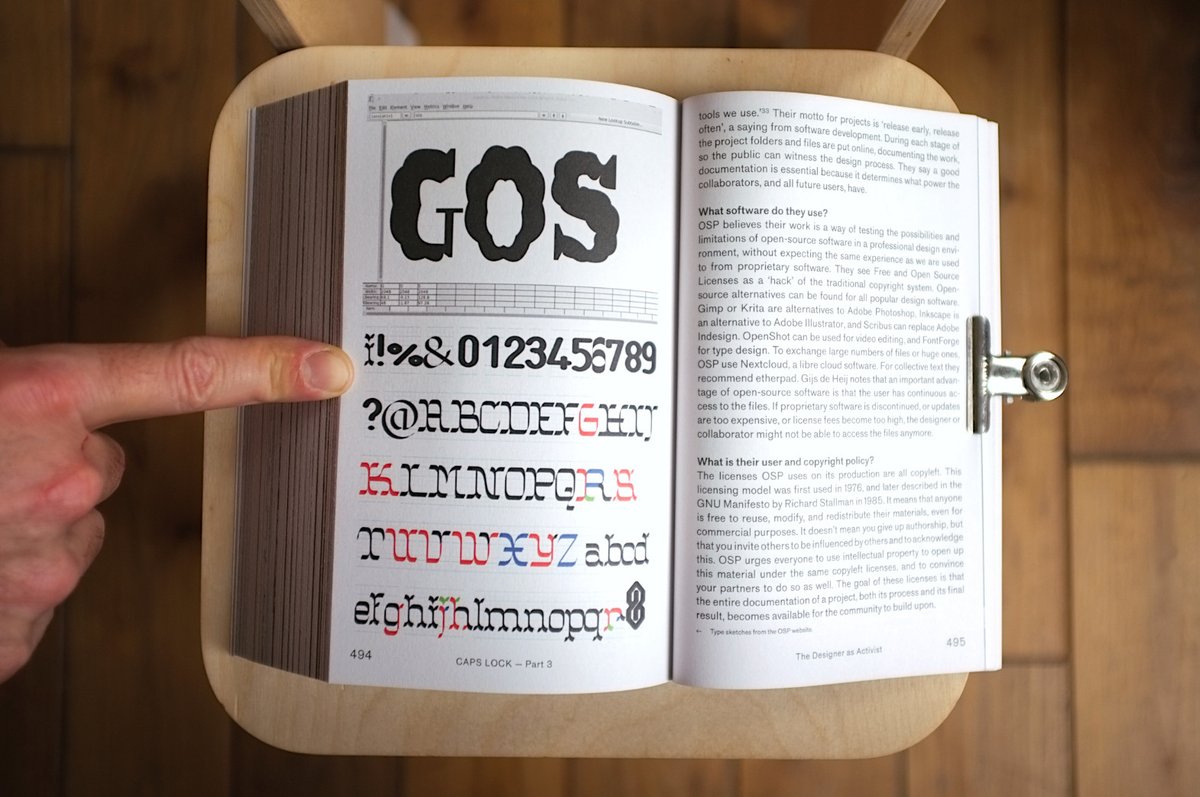 File Edit Element View Metrics Window Help
New Lookup Subtable...
GTOS
!%&0123456789
?@ABCDEFGHIJ
KLMNOPQRS
TUVWXYZ abcd
efghijhlmnopqr
494
CAPS LOCK — Part 3
tools we use.'³³ Their motto for projects is 'release early, release
often', a saying from software development. During each stage of
the project folders and files are put online, documenting the work,
so the public can witness the design process. They say a good
documentation is essential because it determines what power the
collaborators, and all future users, have.
What software do they use?
OSP believes their work is a way of testing the possibilities and
limitations of open-source software in a professional design envi-
ronment, without expecting the same experience as we are used
to from proprietary software. They see Free and Open Source
Licenses as a 'hack' of the traditional copyright system. Open-
source alternatives can be found for all popular design software.
Gimp or Krita are alternatives to Adobe Photoshop, Inkscape is
an alternative to Adobe Illustrator, and Scribus can replace Adobe
Indesign. OpenShot can be used for video editing, and FontForge
for type design. To exchange large numbers of files or huge ones,
OSP use Nextcloud, a libre cloud software. For collective text they
recommend etherpad. Gijs de Heij notes that an important advan-
tage of open-source software is that the user has continuous ac-
cess to the files. If proprietary software is discontinued, or updates
are too expensive, or license fees become too high, the designer or
collaborator might not be able to access the files anymore.
What is their user and copyright policy?
The licenses OSP uses on its production are all copyleft. This
licensing model was first used in 1976, and later described in the
GNU Manifesto by Richard Stallman in 1985. It means that anyone
is free to reuse, modify, and redistribute their materials, even for
commercial purposes. It doesn't mean you give up authorship, but
that you invite others to be influenced by others and to acknowledge
this. OSP urges everyone to use intellectual property to open up
this material under the same copyleft licenses, and to convince
your partners to do so as well. The goal of these licenses is that
the entire documentation of a project, both its process and its final
result, becomes available for the community to build upon.
← Type sketches from the OSP website.
The Designer as Activist
495